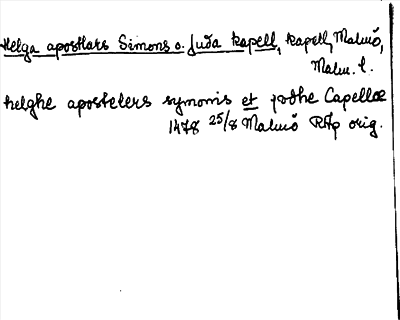 Helga apostlars Simons o. Juda kapell, kapell, Malmö,
Malm. l.
helghe apostelers symonis et jodhe Capellæ
1478 25/8 Malmö RAp orig.